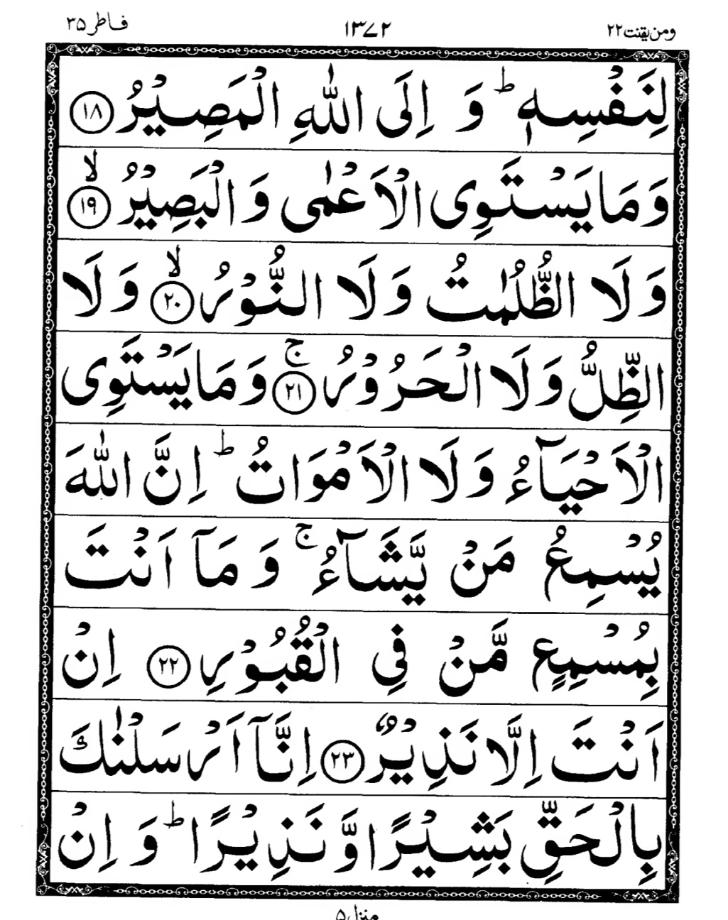 ومن یقنت ۲۲ ۱۳۷۲ فاطر ۳۵
لِنَفْسِهٖ ؕ وَ اِلَی اللّٰهِ الْمَصِیْرُ ﴿۱۸﴾
وَ مَا یَسْتَوِی الْاَعْمٰی وَ الْبَصِیْرُ ﴿۱۹﴾ۙ
وَ لَا الظُّلُمٰتُ وَ لَا النُّوْرُ ﴿۲۰﴾ۙ وَ لَا
الظِّلُّ وَ لَا الْحَرُوْرُ ﴿۲۱﴾ۚ وَ مَا یَسْتَوِی
الْاَحْیَآءُ وَ لَا الْاَمْوَاتُ ؕ اِنَّ اللّٰهَ
یُسْمِعُ مَنْ یَّشَآءُ ۚ وَ مَاۤ اَنْتَ
بِمُسْمِعٍ مَّنْ فِی الْقُبُوْرِ ﴿۲۲﴾ اِنْ
اَنْتَ اِلَّا نَذِیْرٌ ﴿۲۳﴾ اِنَّاۤ اَرْسَلْنٰكَ
بِالْحَقِّ بَشِیْرًا وَّ نَذِیْرًا ؕ وَ اِنْ
منزل ۵